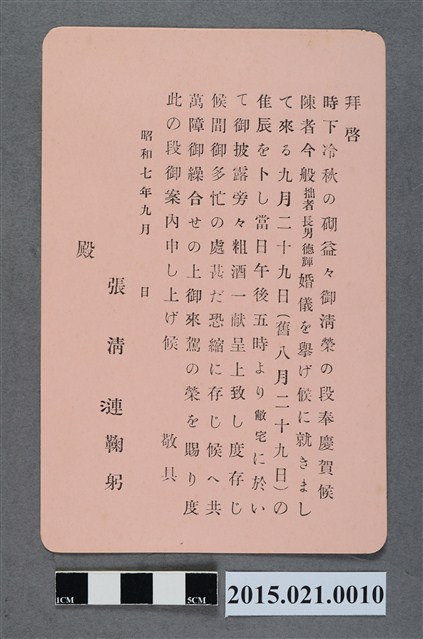 拜啓
時下冷秋の砌益々御淸榮の段奉慶賀候
陳者今般拙者長男德輝婚儀を擧げ候に就きまし
て來る九月二十九日(舊八月二十九日)の
佳辰を卜し當日午後五時より敝宅に於い
て御披露旁々粗酒一献呈上致し度存じ
候間御多忙の處甚だ恐縮に存じ候へ共
萬障御繰合せの上御來駕の榮を賜り度
此の段御案內申し上げ候　敬具
昭和七年九月　日
張淸漣鞠躬
殿
1CM
5CM
2015.021.0010